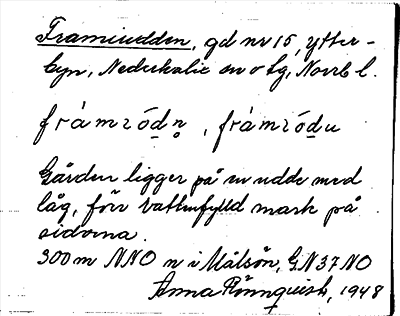 Framiudden, gd nr 15, Ytter-
byn, Nederkalix sn o tg, Norrb l.
frámródn̥, frámródu
Gården ligger på en udde med
låg, förr vattenfylld mark på
sidorna.
300 m NNO n i Målsön, GN 37 NO
Anna Rönnquist, 1948